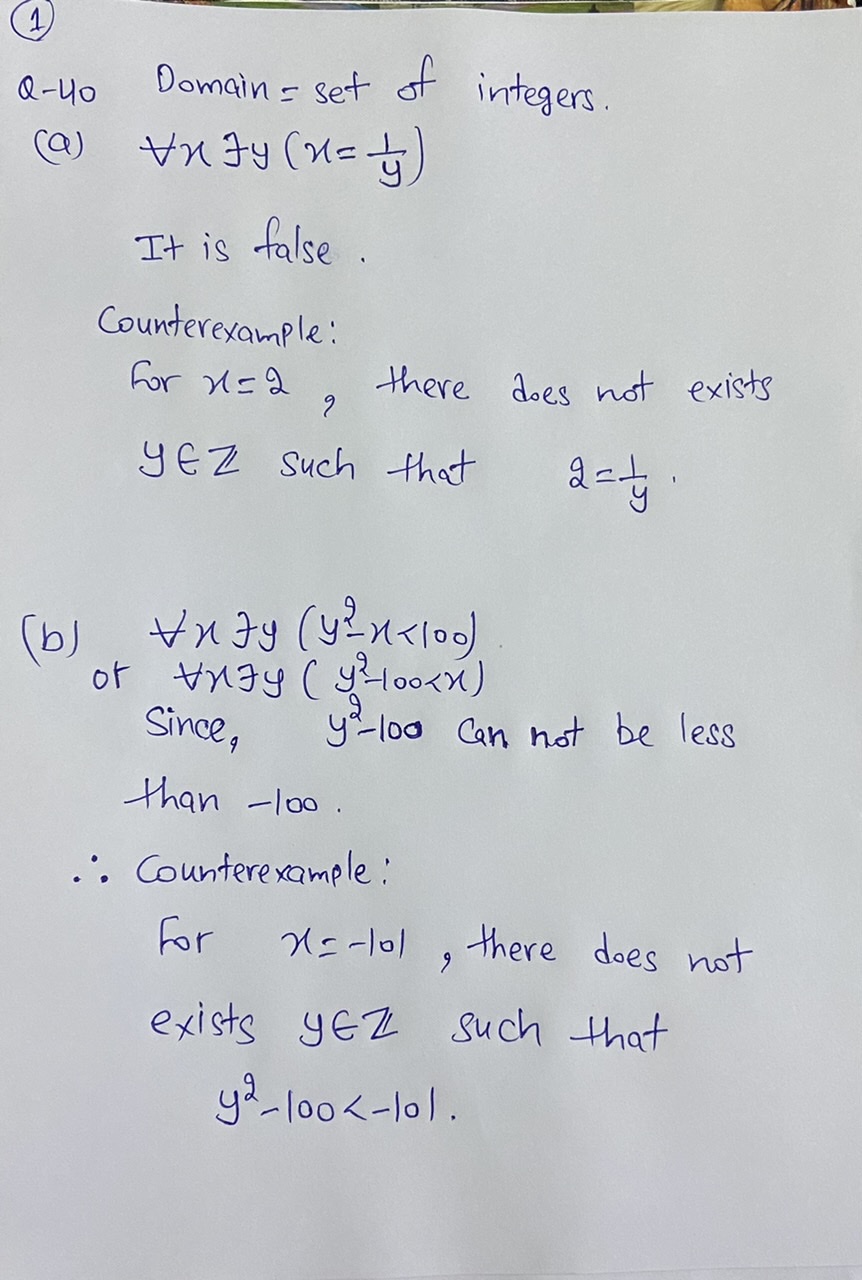 ①
Q-40 Domain = set of integers.
(a) ∀x ∃y (x = 1/y)
It is false.
Counterexample:
For x=2, there does not exists
y∈ℤ such that 2=1/y.
(b) ∀x ∃y (y²-x<100)
or ∀x∃y (y²-100<x)
Since, y²-100 can not be less
than -100.
∴ Counterexample:
For x=-101, there does not
exists y∈ℤ such that
y²-100<-101.